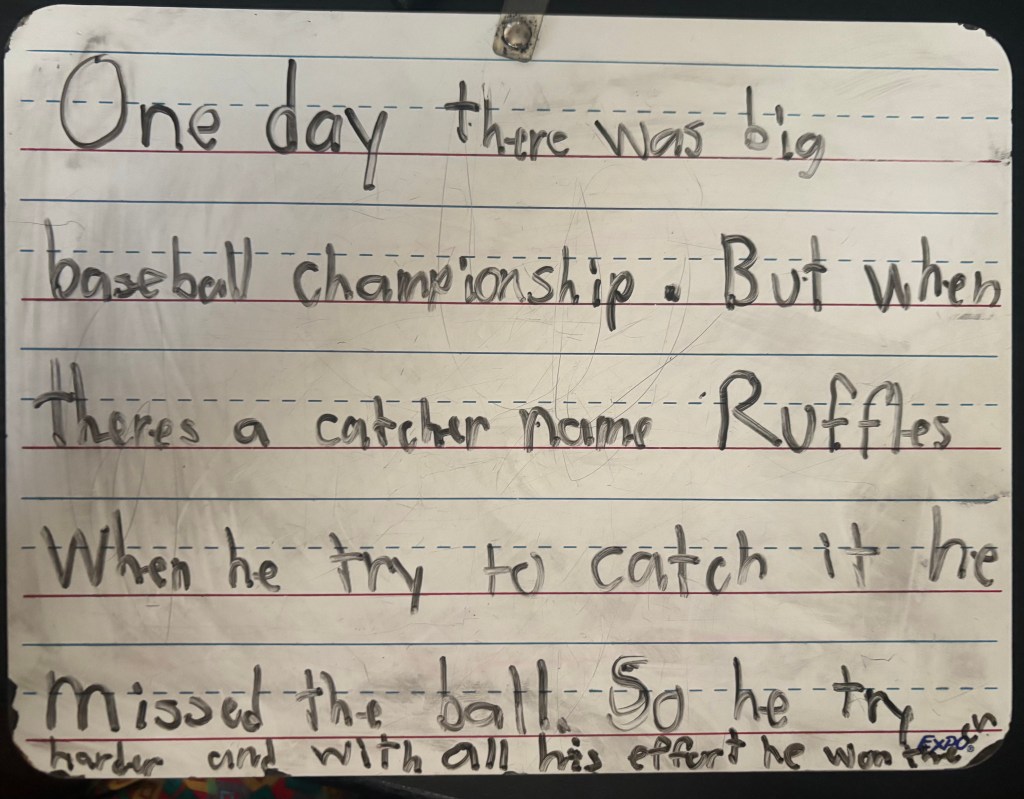 One day there was big
baseball championship. But when
theres a catcher name Ruffles
When he try to catch it he
missed the ball. So he try
harder and with all his effort he won
EXPO